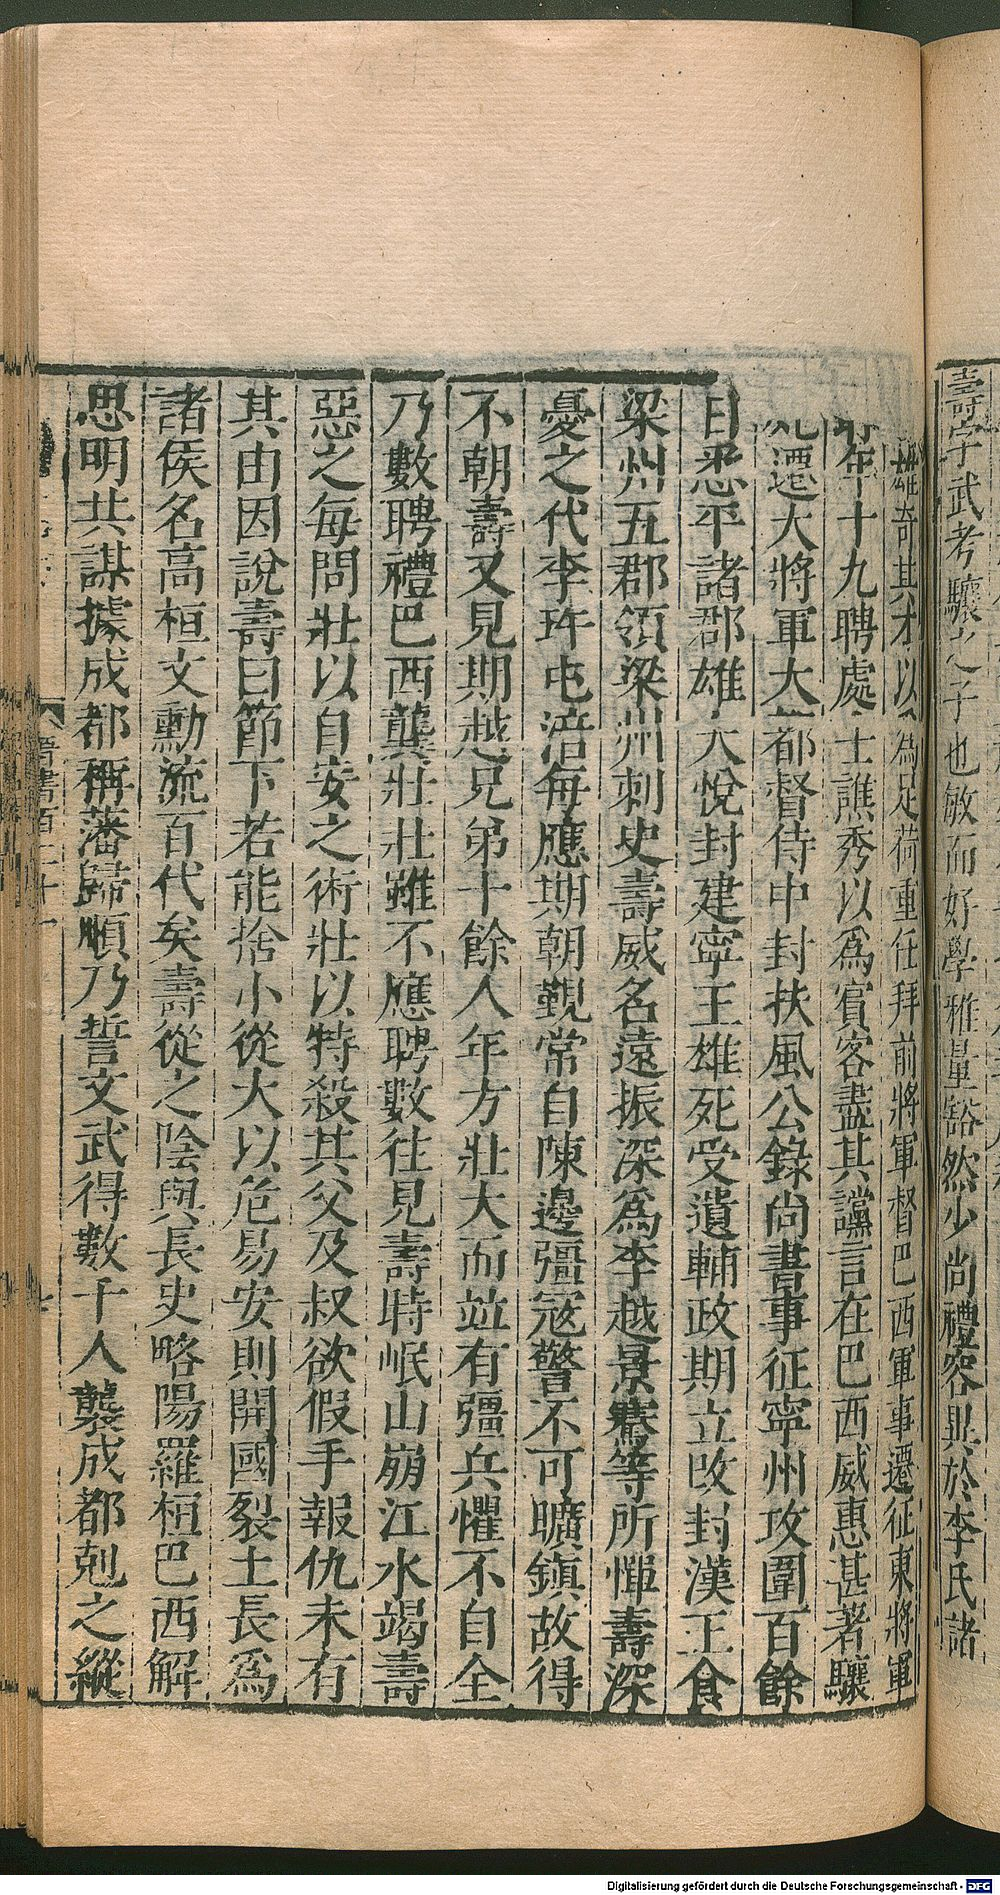 壽字武考驤之子也敏而好學雅量豁然少尚禮容異於李氏諸
雄奇其才以為足荷重任拜前將軍督巴西軍事遷征東將軍
年十九聘處士譙秀以爲賓客盡其讜言在巴西威惠甚著驤
死遷大將軍大都督侍中封扶風公錄尚書事征寧州攻圍百餘
日悉平諸郡雄大悅封建寧王雄死受遺輔政期立改封漢王食
梁州五郡領梁州刺史壽威名遠振深爲李越景騫等所憚壽深
憂之代李玝屯涪每應期朝覲常自陳邊彊寇警不可曠鎮故得
不朝壽又見期越兄弟十餘人年方壯大而竝有彊兵懼不自全
乃數聘禮巴西龔壯壯雖不應聘數往見壽時岷山崩江水竭壽
惡之每問壯以自安之術壯以特殺其父及叔欲假手報仇未有
其由因說壽曰節下若能捨小從大以危易安則開國裂土長爲
諸侯名高桓文勳流百代矣壽從之陰與長史略陽羅桓巴西解
思明共謀據成都稱藩歸順乃誓文武得數千人襲成都剋之縱
晉書百二十一
Digitalisierung gefördert durch die Deutsche Forschungsgemeinschaft - DFG